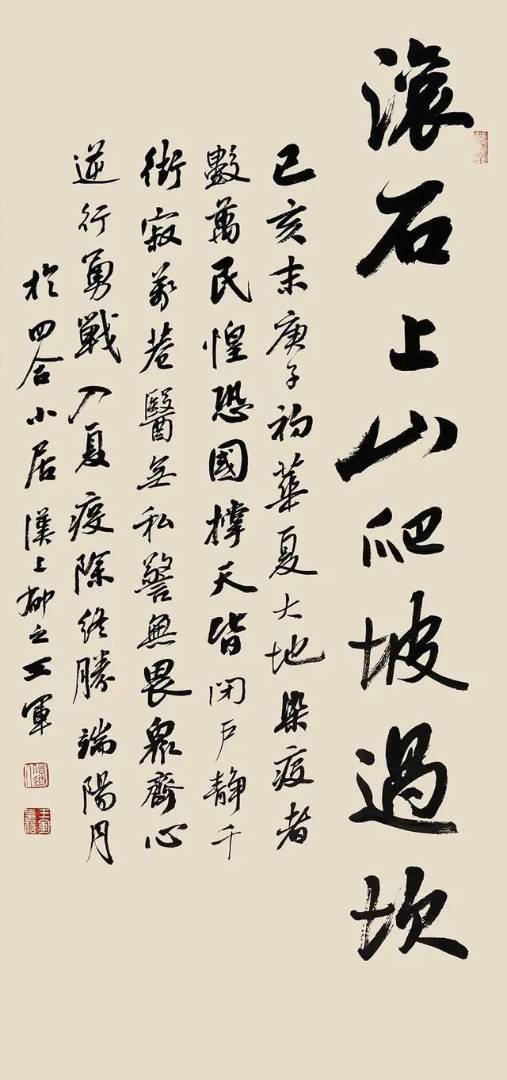 滾石上山爬坡過坎
己亥末庚子初華夏大地染疫者
數萬民惶恐國撑天皆閉戶靜千
街寂萬巷醫無私警無畏衆齊心
逆行勇戰入夏疫除終勝端陽月
於四合小居漢上之王軍